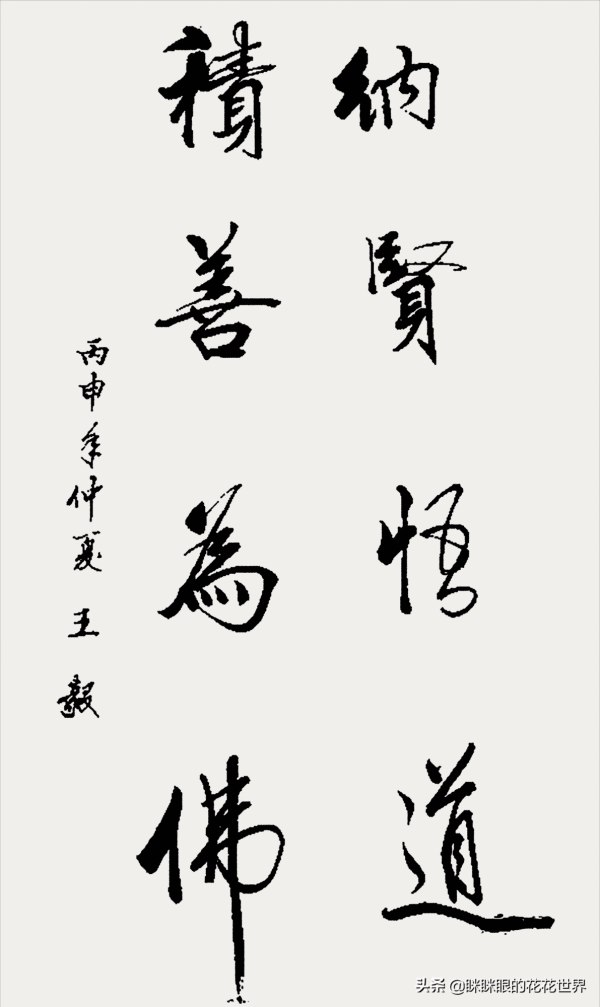 納賢悟道
積善為佛
丙申年仲夏 王毅
头条 @眯眯眼的花花世界